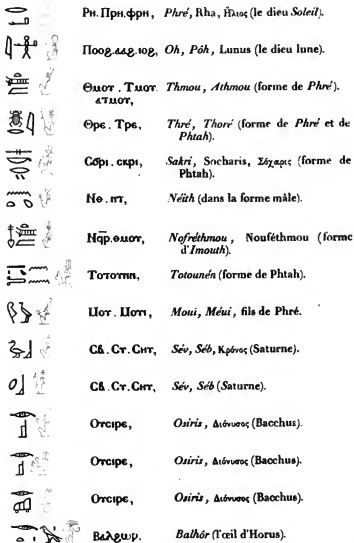 Ⲣⲏ. Ⲡⲣⲏ.ⲫⲣⲏ, Phré, Rha, Ἥλιος (le dieu Soleil).
Ⲡⲟⲟϩ.ⲁⲁϩ.ⲓⲟϩ, Oh, Pôh, Lunus (le dieu lune).
Ⲑⲙⲟⲩ. Ⲧⲙⲟⲩ. Thmou, Athmou (forme de Phré).
ⲁⲧⲙⲟⲩ,
Ⲑⲣⲉ. Ⲧⲣⲉ, Thré, Thoré (forme de Phré et de
Phtah).
ⲥⲕⲣⲓ, Sakri, Socharis, Σόχαρις (forme de
Phtah).
Ⲛⲑ. ⲛⲧ, Néith (dans la forme mâle).
Ⲛϥⲣ.ⲑⲙⲟⲩ, Nofréthmou, Nouféthmou (forme
d'Imouth).
Ⲧⲟⲧⲟⲩⲛⲛ, Totounén (forme de Phtah).
Ⲙⲟⲩ. Ⲙⲟⲩⲓ, Moui, Méui, fils de Phré.
Ⲥⲃ. Ⲥⲩ. Ⲥⲏⲩ, Sév, Séb, Κρόνος (Saturne).
Ⲥⲃ. Ⲥⲩ. Ⲥⲏⲩ, Sév, Séb (Saturne).
Ⲟⲩⲥⲓⲣⲉ, Osiris, Διόνυσος (Bacchus).
Ⲟⲩⲥⲓⲣⲉ, Osiris, Διόνυσος (Bacchus).
Ⲟⲩⲥⲓⲣⲉ, Osiris, Διόνυσος (Bacchus).
Ⲃⲁⲗϩⲱⲣ. Balhôr (l'œil d'Horus).